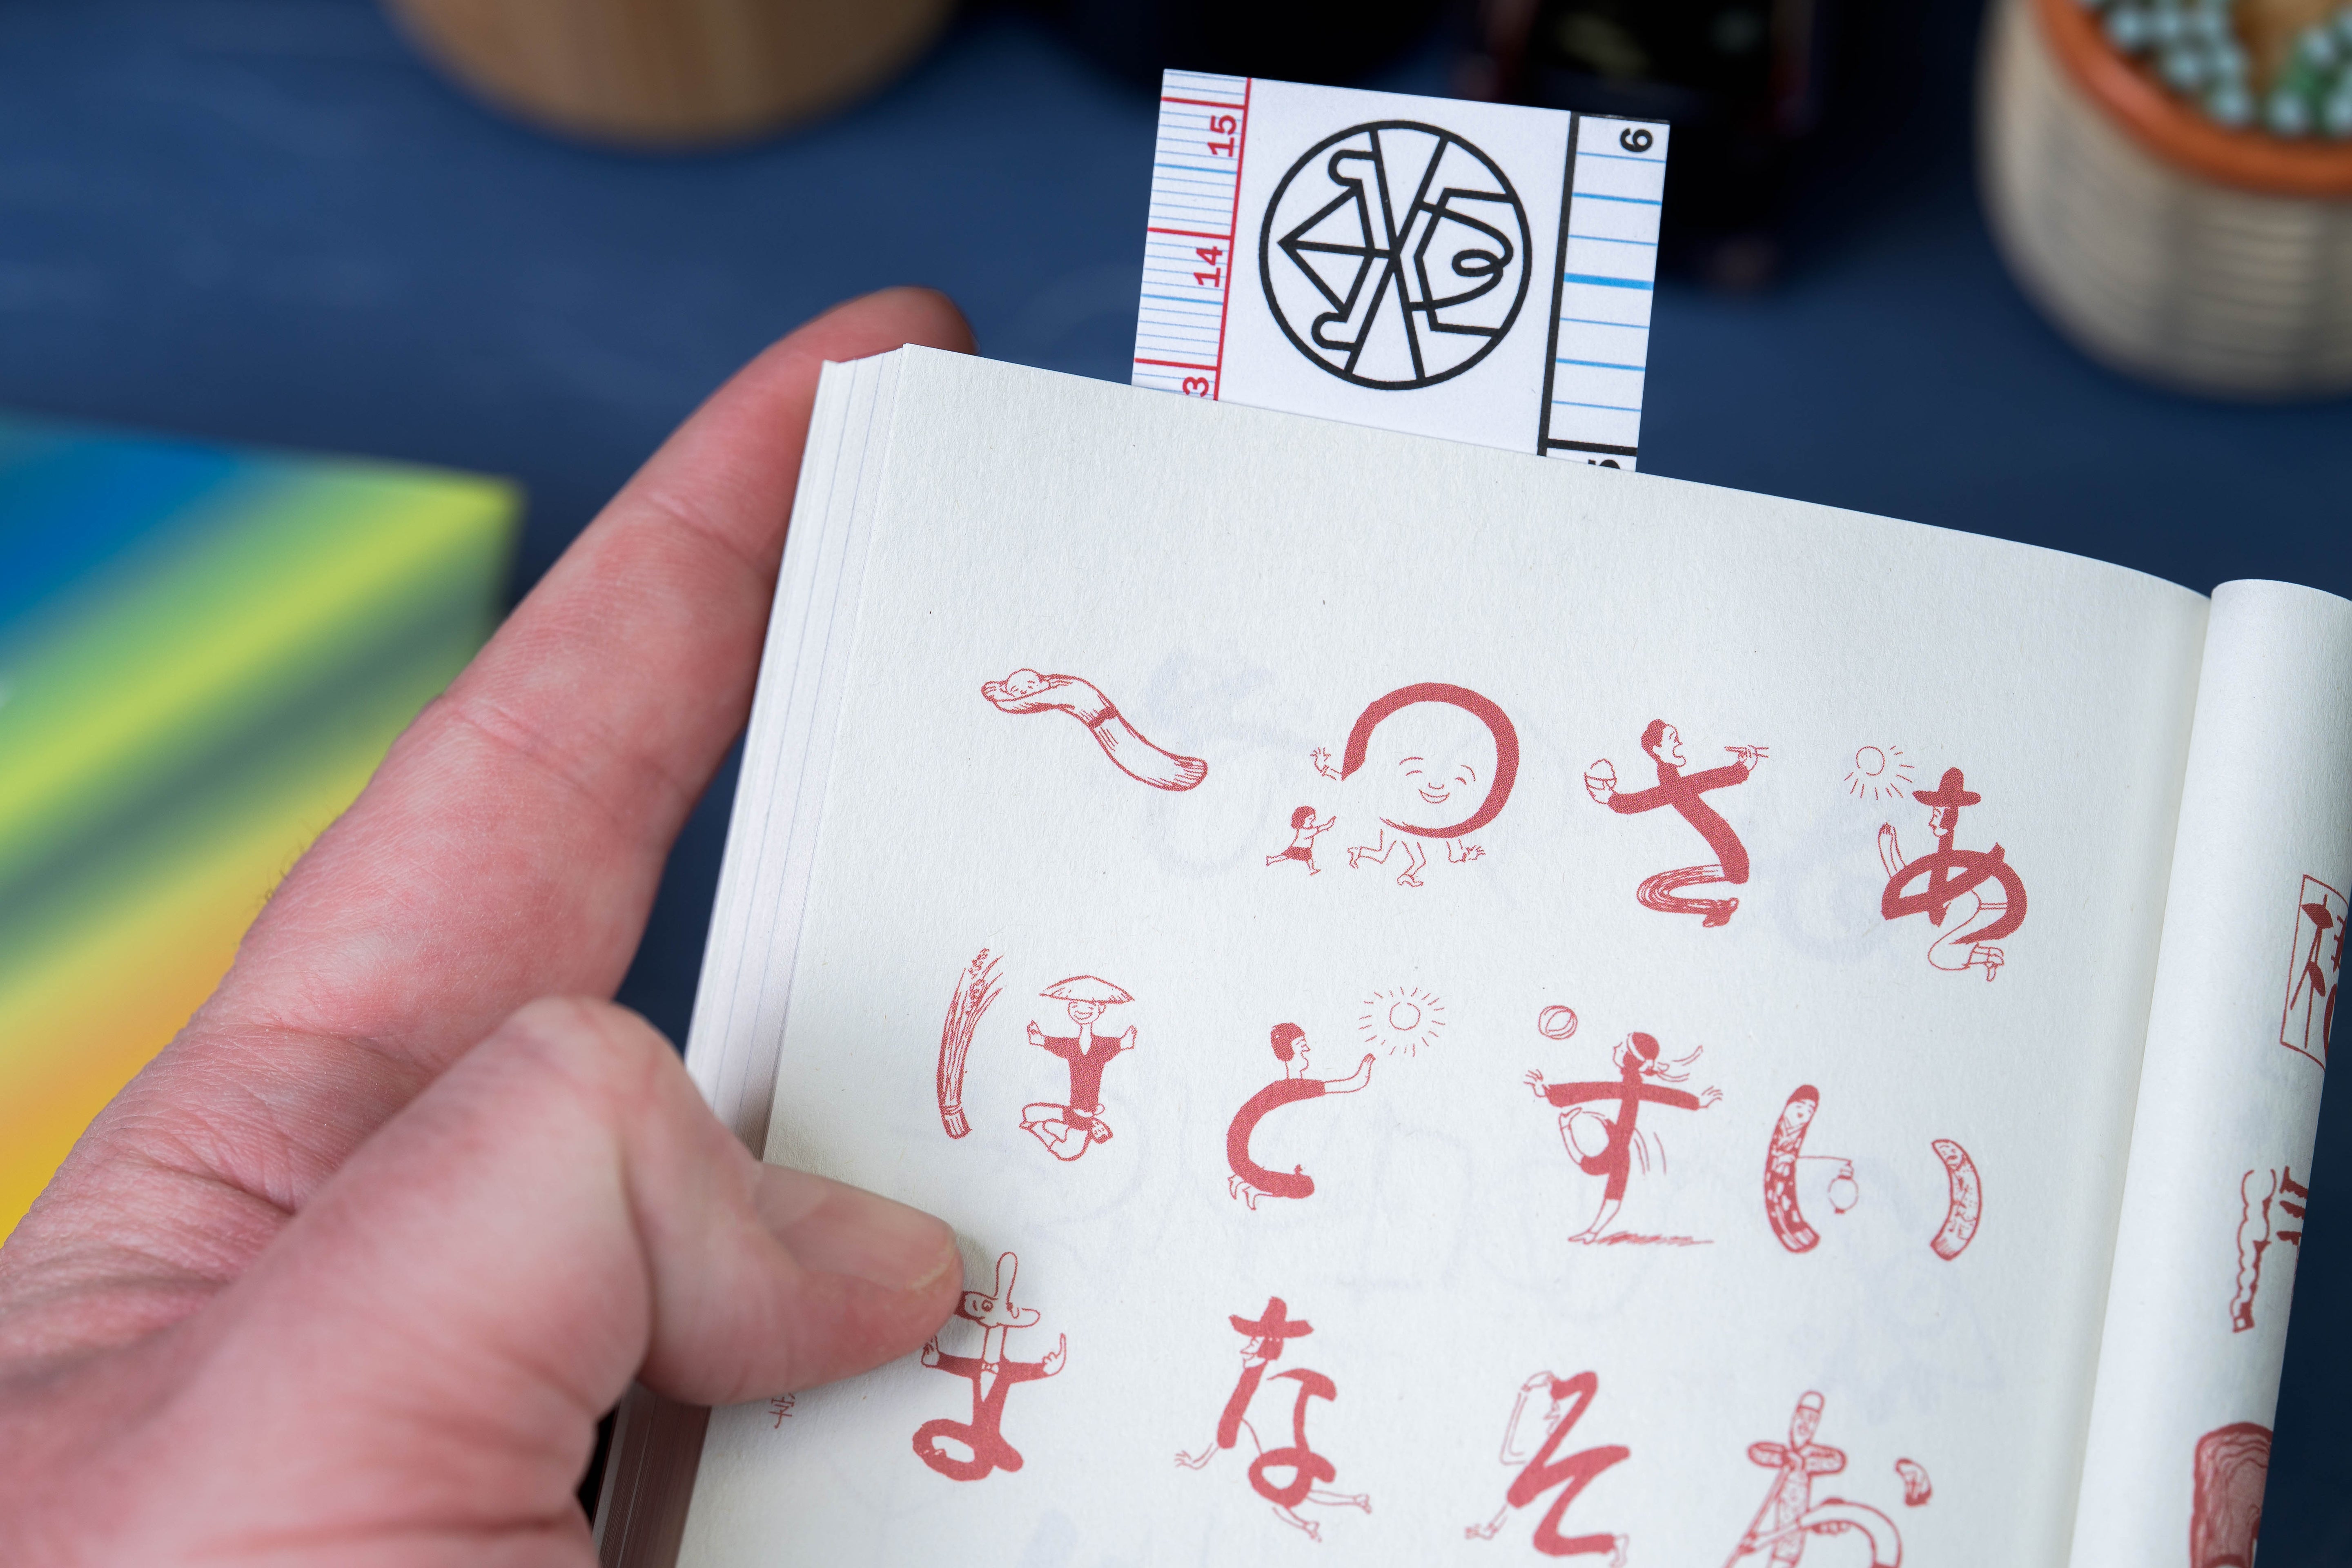 15
14
6
あいお
さすそ
つとな
へほま